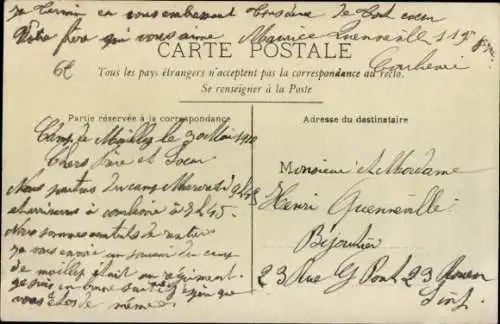 Je termine en vous embrassant tous deux de tout coeur
Votre frère qui vous aime Maurice Quenneville 119
CARTE POSTALE
6€
Tous les pays étrangers n'acceptent pas la correspondance au recto.
Se renseigner à la Poste
Partie réservée à la correspondance
Camp de Mailly le 30 Mai 1910
Chers frère et Soeur
Nous partons du camp Mercredi
arriverons à à 2h45.
Nous sommes
je vous envoie un souvenir du camp
de mailly était un régiment.
je suis en bonne santé j'espère que
vous êtes de même.
Adresse du destinataire
Monsieur et Madame
Henri Quenneville
Bijoutier
23 Rue Gd Pont 23 Rouen
Sinf.